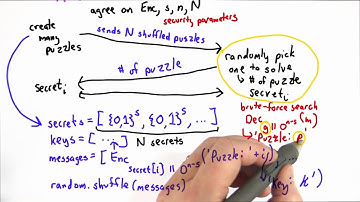 agree on Enc, s, n, N
security parameters
create
many
puzzles
sends N shuffled puzzles
# of puzzle
Secret i
randomly pick
one to solve
↳ # of puzzle
secret i
brute-force search
Dec g || 0^n-s (m)
↳ 'Puzzle: p
secrets = [{0,1}^s, {0,1}^s, ...]
keys = [ ... ] N secrets
messages = [Enc secret[i] || 0^n-s ('Puzzle:' + i
'key: k')
random.shuffle(messages)